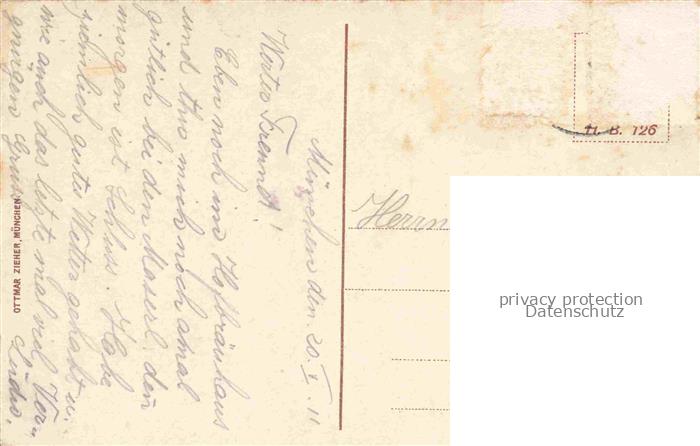 München den 20. V. 11
Werter Freund!
Eben noch im Hofbräuhaus
und thue mich noch amal
gütlich bei den Masserl den
morgen ist Schluss. Habe
ziemlich gutes Wetter gehabt u.
wie auch das letzte mal viel Ver-
gnügen Gruss
Ludw.
OTTMAR ZIEHER, MÜNCHEN
H. B. 126
Herrn
privacy protection
Datenschutz